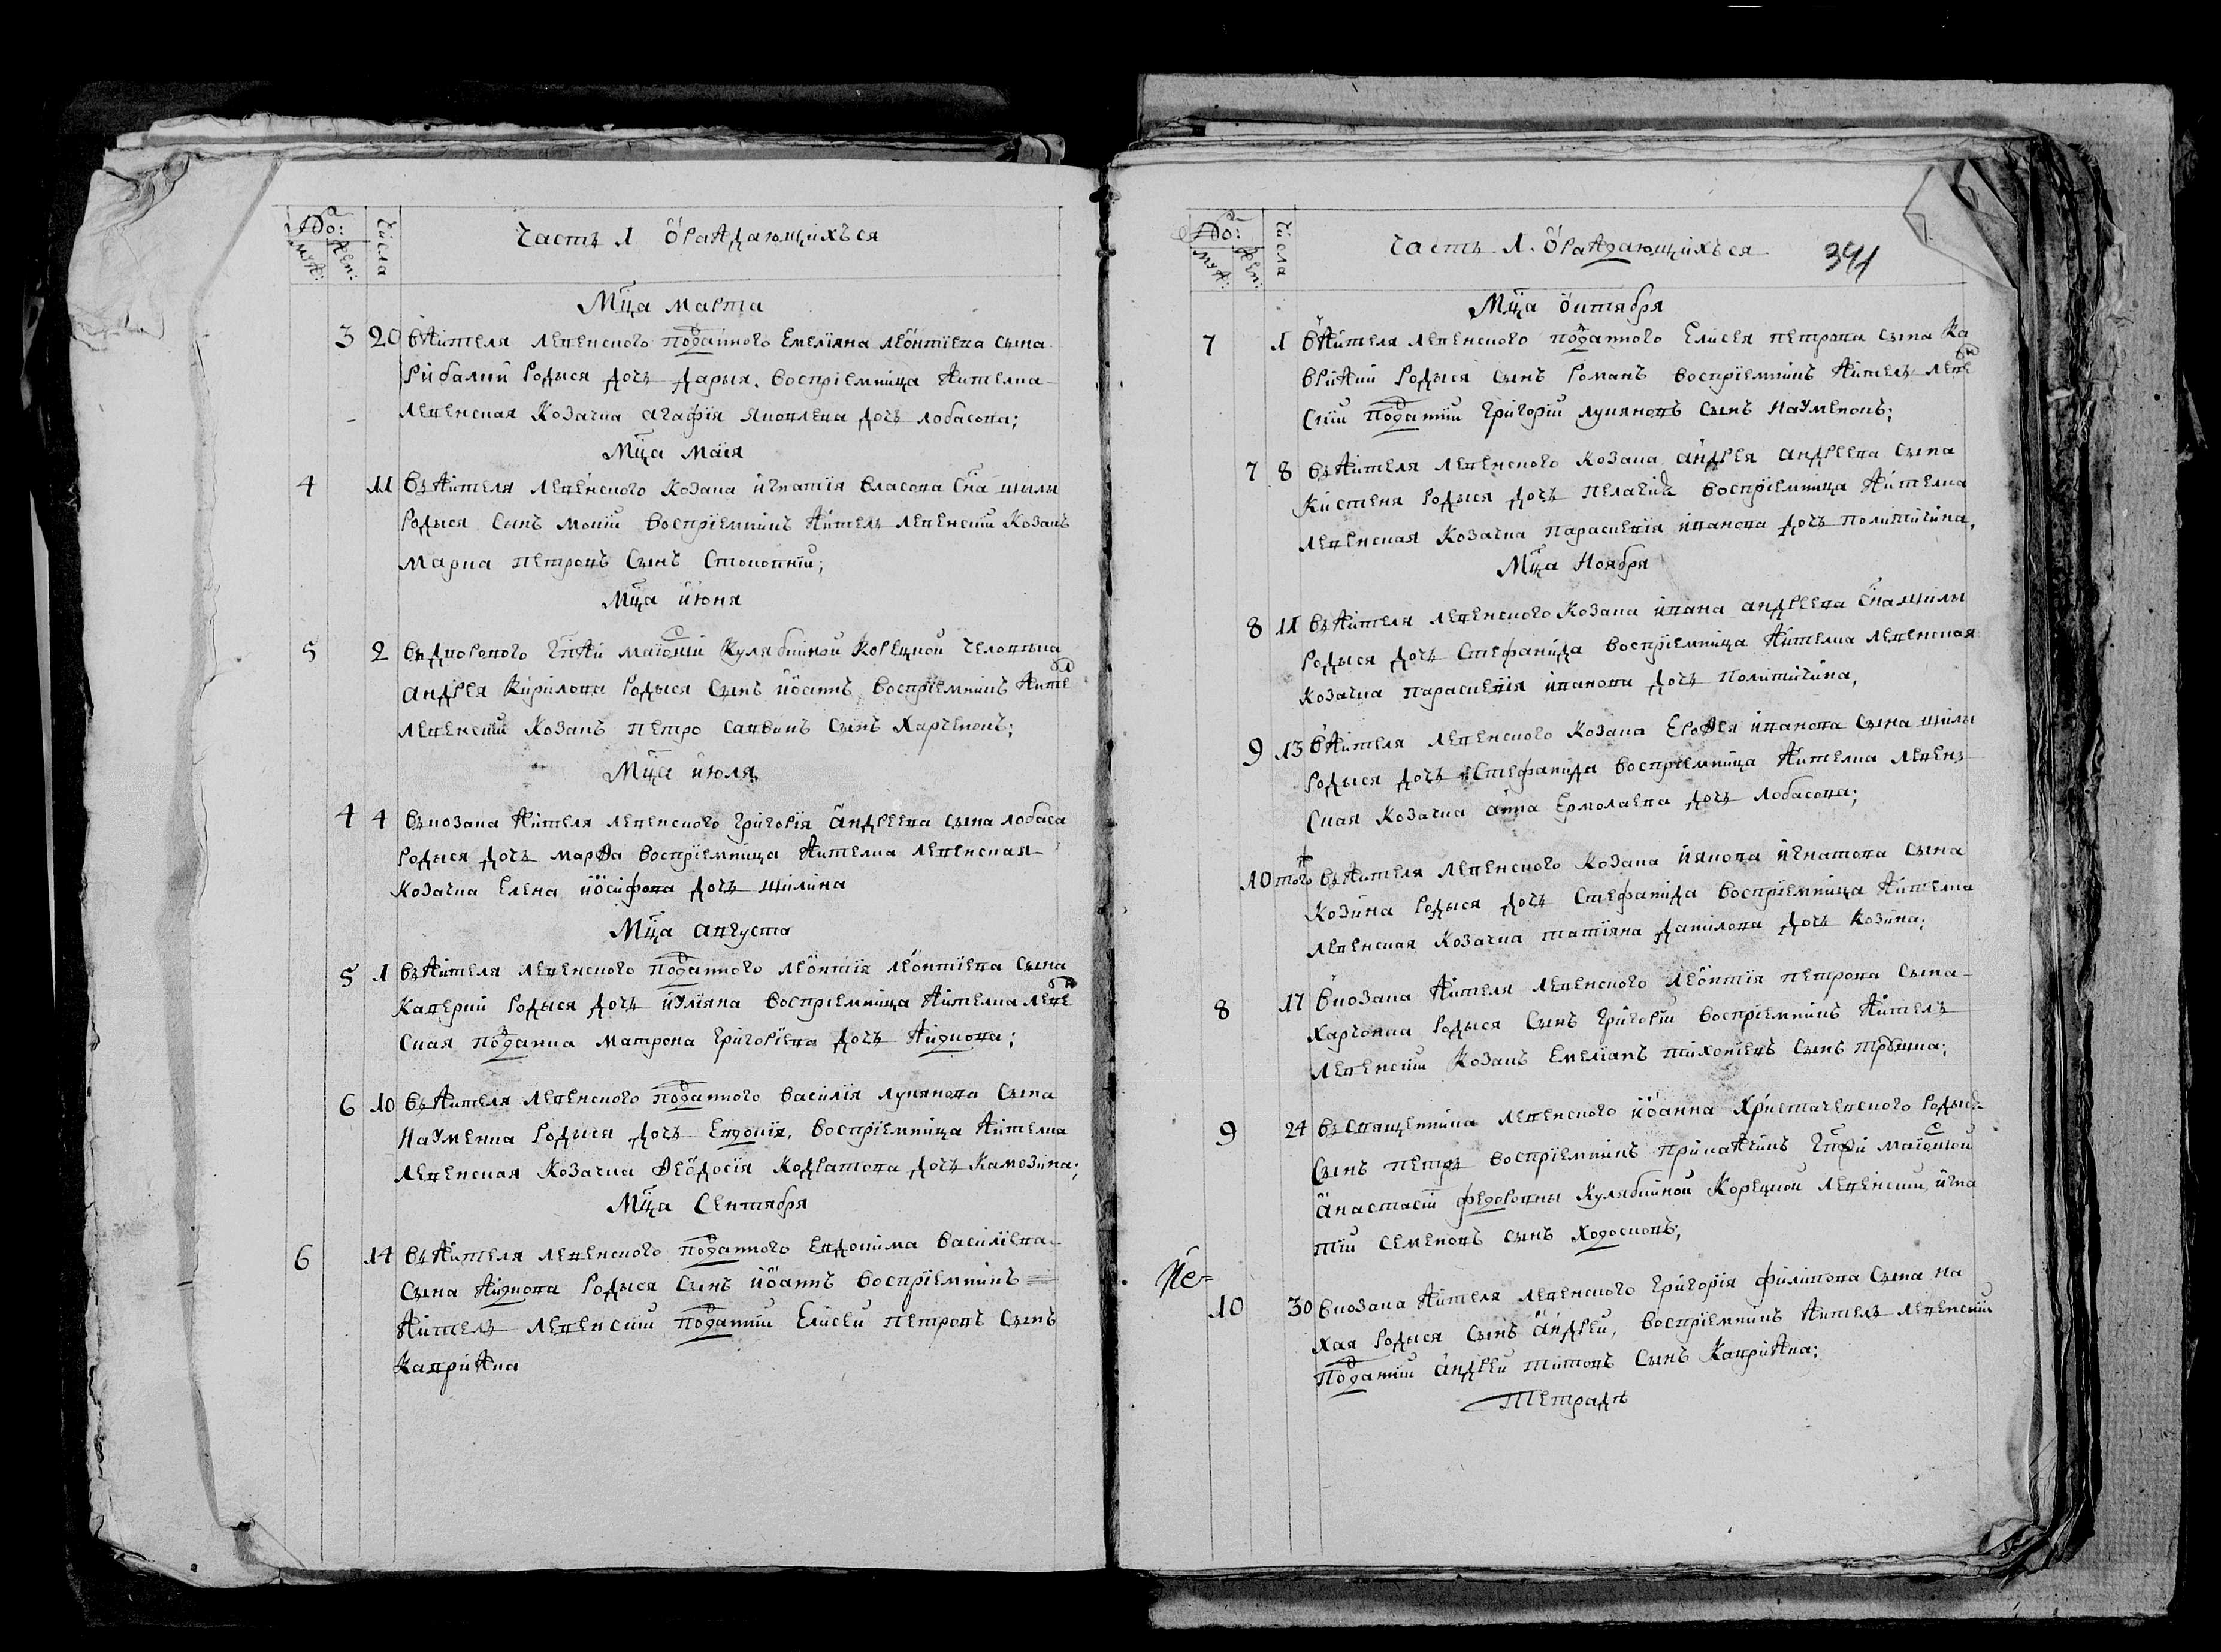 Часть 1 ораждающихъся
Мца марта
3 20 вжителя левенского подданного Емелiяна леонтiева сына
Рибалки родыся дочь дарыя. воспрiемница жителка
левенская козачка агафiя яковлева дочь лобасова;
Мца маiя
4 11 вжителя левенского козака игнатiя власова сна шилы
родыся сынъ моисiй воспрiемникъ житель левенскiй козакъ
марко петровъ сынъ
Мца июня
5 2 вдворового гпжи маiорши Кулябкиной Корецкой человека
андрея кирилова родыся сынъ иоаннъ, воспрiемникъ жите
левенскiй козакъ петро саввинъ сынъ харченокъ;
Мца июля
4 4 вкозака жителя левенского григорiя андреева сына лобаса
родыся дочь марфа воспрiемница жителка левенская
козачка Елена иосифова дочь шилина
Мца августа
5 1 вжителя левенского подданного леонтiя леонтiева сына
родыся дочь иулiяна воспрiемница жителка леве
ская подданка матрона григорiева дочь жидкова;
6 10 вжителя левенского подданного василiя лукянова сына
науменка родыся дочь Евдокiя, воспрiемница жителка
левенская козачка феодосiя кодратова дочь камозина;
Мца Сентября
6 14 вжителя левенского подданного Евдокима василiева
сына жидкова родыся сынъ иоаннъ воспрiемникъ
житель левенскiй подданiй Елисей петровъ сынъ
каврижка
Часть 1. ораждающихъся 391
Мца октября
7 1 вжителя левенского подданного Елисея петрова сына ка
врижки родыся сынъ романъ воспрiемникъ житель леве
скiй подданiй григорiй лукяновъ сынъ науменокъ;
7 8 вжителя левенского козака андрея андреева сына
кистеня родыся дочь пелагия воспрiемница жителка
левенская козачка параскевiя иванова дочь политичина,
Мца Ноября
8 11 вжителя левенского козака ивана андреева сна шилы
родыся дочь стефанида воспрiемница жителка левенская
козачка параскевiя иванова дочь политичина,
9 13 вжителя левенского козака Ерофея иванова сына шилы
родыся дочь стефанида воспрiемница жителка левень
ская козачка анна Ермолаева дочь лобасова;
10 того вжителя левенского козака иякова игнатова сына
козина родыся дочь стефанида воспрiемница жителка
левенская козачка татiяна данилова дочь козина;
8 17 вкозака жителя левенского леонтiя петрова сына
харченка родыся сынъ григорiй воспрiемникъ житель
левенскiй козакъ Емелiянъ тихонiевъ сынъ
9 24 всвященника левенского иоанна христачевского родыся
сынъ петръ воспрiемникъ прикажчикъ гпожи маiоршой
анастасiй федоровны кулябкиной корецкой левенский, игна
тiй семеновъ сынъ ходосковъ;
Ne-
10 30 вкозака жителя левенского григорiя филипова сына на
хая родыся сынъ андрей, воспрiемникъ житель левенскiй
подданiй андрей титовъ сынъ каврижка;
Тетрадь